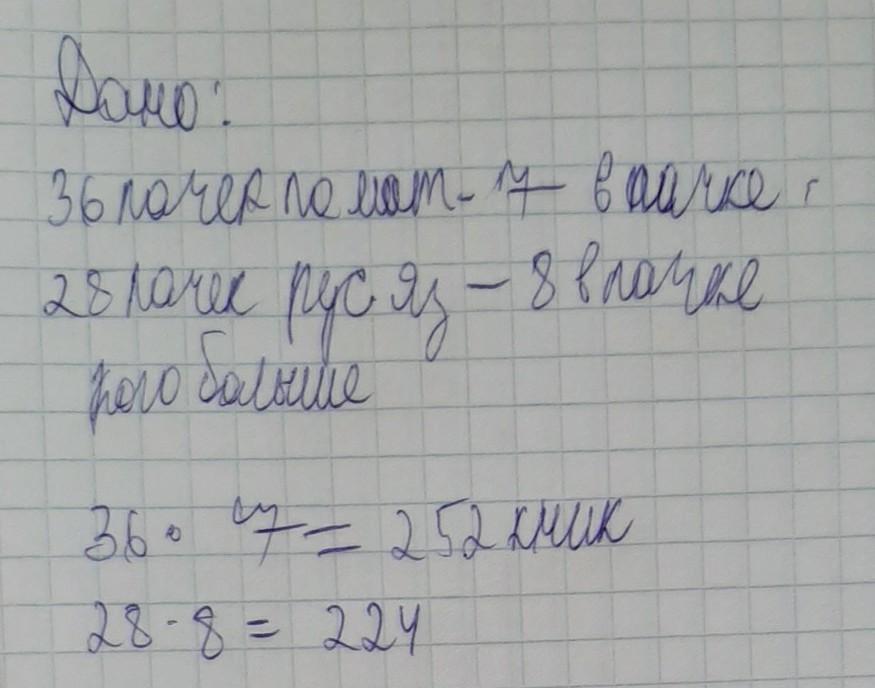 Дано:
36 пачек по мат- 7 в пачке.
28 пачек рус яз - 8 в пачке
кого больше
36 · 7 = 252 книж
28 · 8 = 224